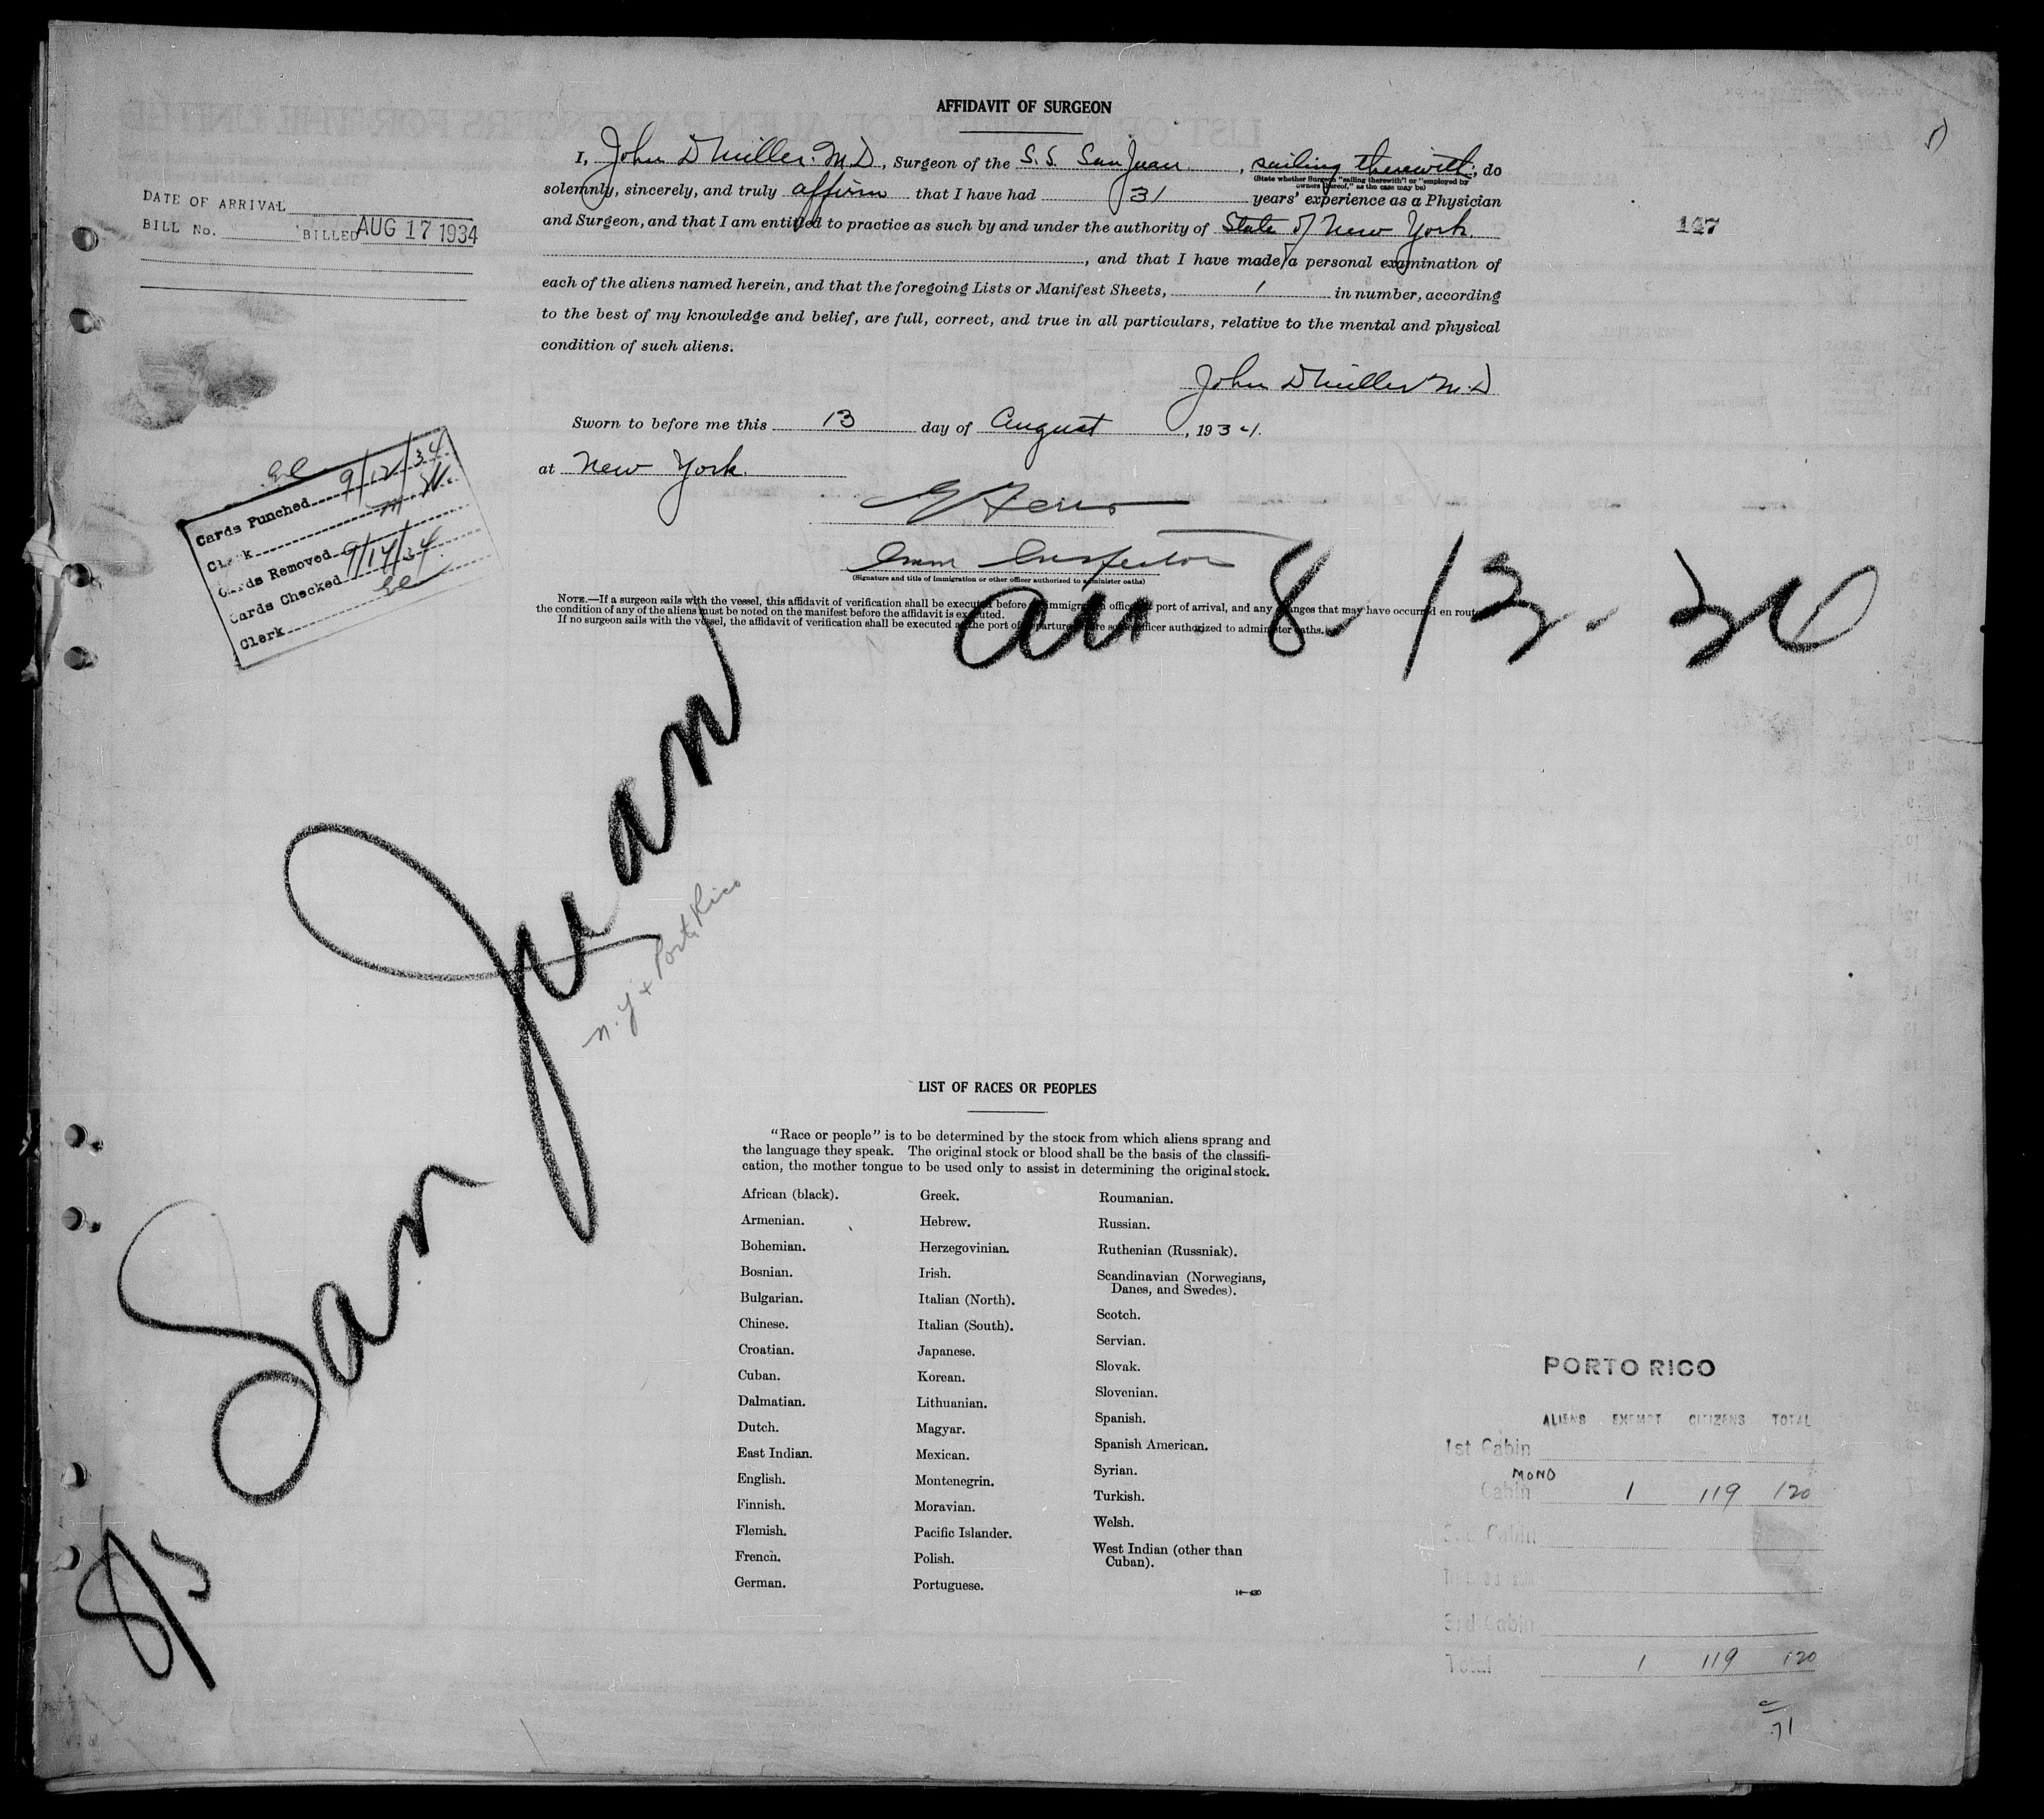 AFFIDAVIT OF SURGEON
I, John D Miller. M.D., Surgeon of the S.S. San Juan, sailing therewith, do
(State whether Surgeon "sailing therewith" or "employed by
owners thereof," as the case may be)
solemnly, sincerely, and truly affirm that I have had 31 years' experience as a Physician
and Surgeon, and that I am entitled to practice as such by and under the authority of State of New York.
, and that I have made a personal examination of
each of the aliens named herein, and that the foregoing Lists or Manifest Sheets, 1 in number, according
to the best of my knowledge and belief, are full, correct, and true in all particulars, relative to the mental and physical
condition of such aliens.
John D Miller M.D
Sworn to before me this 13 day of August, 1934.
at New York.
Imm Inspector
(Signature and title of immigration or other officer authorized to administer oaths)
NOTE.—If a surgeon sails with the vessel, this affidavit of verification shall be executed before immigration officer port of arrival, and any changes that may have occurred en route
the condition of any of the aliens must be noted on the manifest before the affidavit is executed.
If no surgeon sails with the vessel, the affidavit of verification shall be executed at the port of departure before some officer authorized to administer oaths.
DATE OF ARRIVAL
BILL No. BILLED AUG 17 1934
147
Cards Punched 9/12/34
Clerk
Cards Removed
Cards Checked 9/14/34
Clerk
arr 8-13-34
S/S San Juan
N.Y & Porto Rico
LIST OF RACES OR PEOPLES
"Race or people" is to be determined by the stock from which aliens sprang and
the language they speak. The original stock or blood shall be the basis of the classifi-
cation, the mother tongue to be used only to assist in determining the original stock.
African (black).
Armenian.
Bohemian.
Bosnian.
Bulgarian.
Chinese.
Croatian.
Cuban.
Dalmatian.
Dutch.
East Indian.
English.
Finnish.
Flemish.
French.
German.
Greek.
Hebrew.
Herzegovinian.
Irish.
Italian (North).
Italian (South).
Japanese.
Korean.
Lithuanian.
Magyar.
Mexican.
Montenegrin.
Moravian.
Pacific Islander.
Polish.
Portuguese.
Roumanian.
Russian.
Ruthenian (Russniak).
Scandinavian (Norwegians,
Danes, and Swedes).
Scotch.
Servian.
Slovak.
Slovenian.
Spanish.
Spanish American.
Syrian.
Turkish.
Welsh.
West Indian (other than
Cuban).
14—430
PORTO RICO
ALIENS EXEMPT CITIZENS TOTAL
1st Cabin
MONO
Cabin 1 119 120
2nd Cabin
3rd Cabin
Total 1 119 120
71